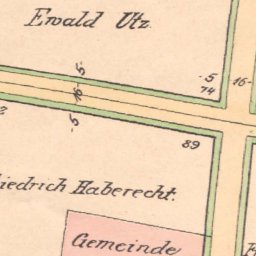 Ewald Utz.
5
5
74
16
16
5
89
iedrich Haberecht.
Gemeinde